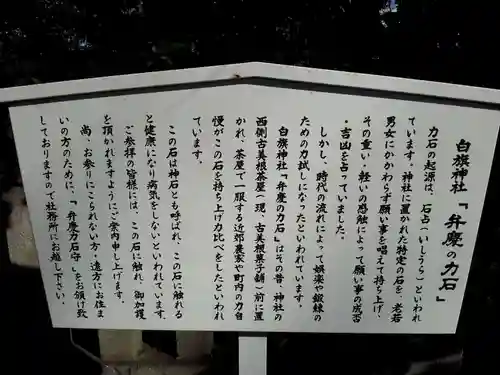 白旗神社「弁慶の力石」
力石の起源は、石占(いしうら)といわれ
ています。神社に置かれた特定の石を、老若
男女にかかわらず願い事を唱えて持ち上げ、
その重い・軽いの感触によって願い事の成否
・吉凶を占っていました。
しかし、時代の流れによって娯楽や鍛錬の
ための力試しになったといわれています。
白旗神社「弁慶の力石」はその昔、神社の
西側古美根茶屋(現、古美根菓子舗)前に置
かれ、茶屋で一服する近郊農家や町内の力自
慢がこの石を持ち上げ力比べをしたといわれ
ています。
この石は神石とも呼ばれ、この石に触れる
と健康になり病気をしないといわれています。
ご参拝の皆様には、この石に触れ、御加護
を頂かれますようにご案内申し上げます。
尚、お参りにこられない方・遠方にお住ま
いの方のために、「弁慶力石守」をお頒け致
しておりますので社務所にお越し下さい。